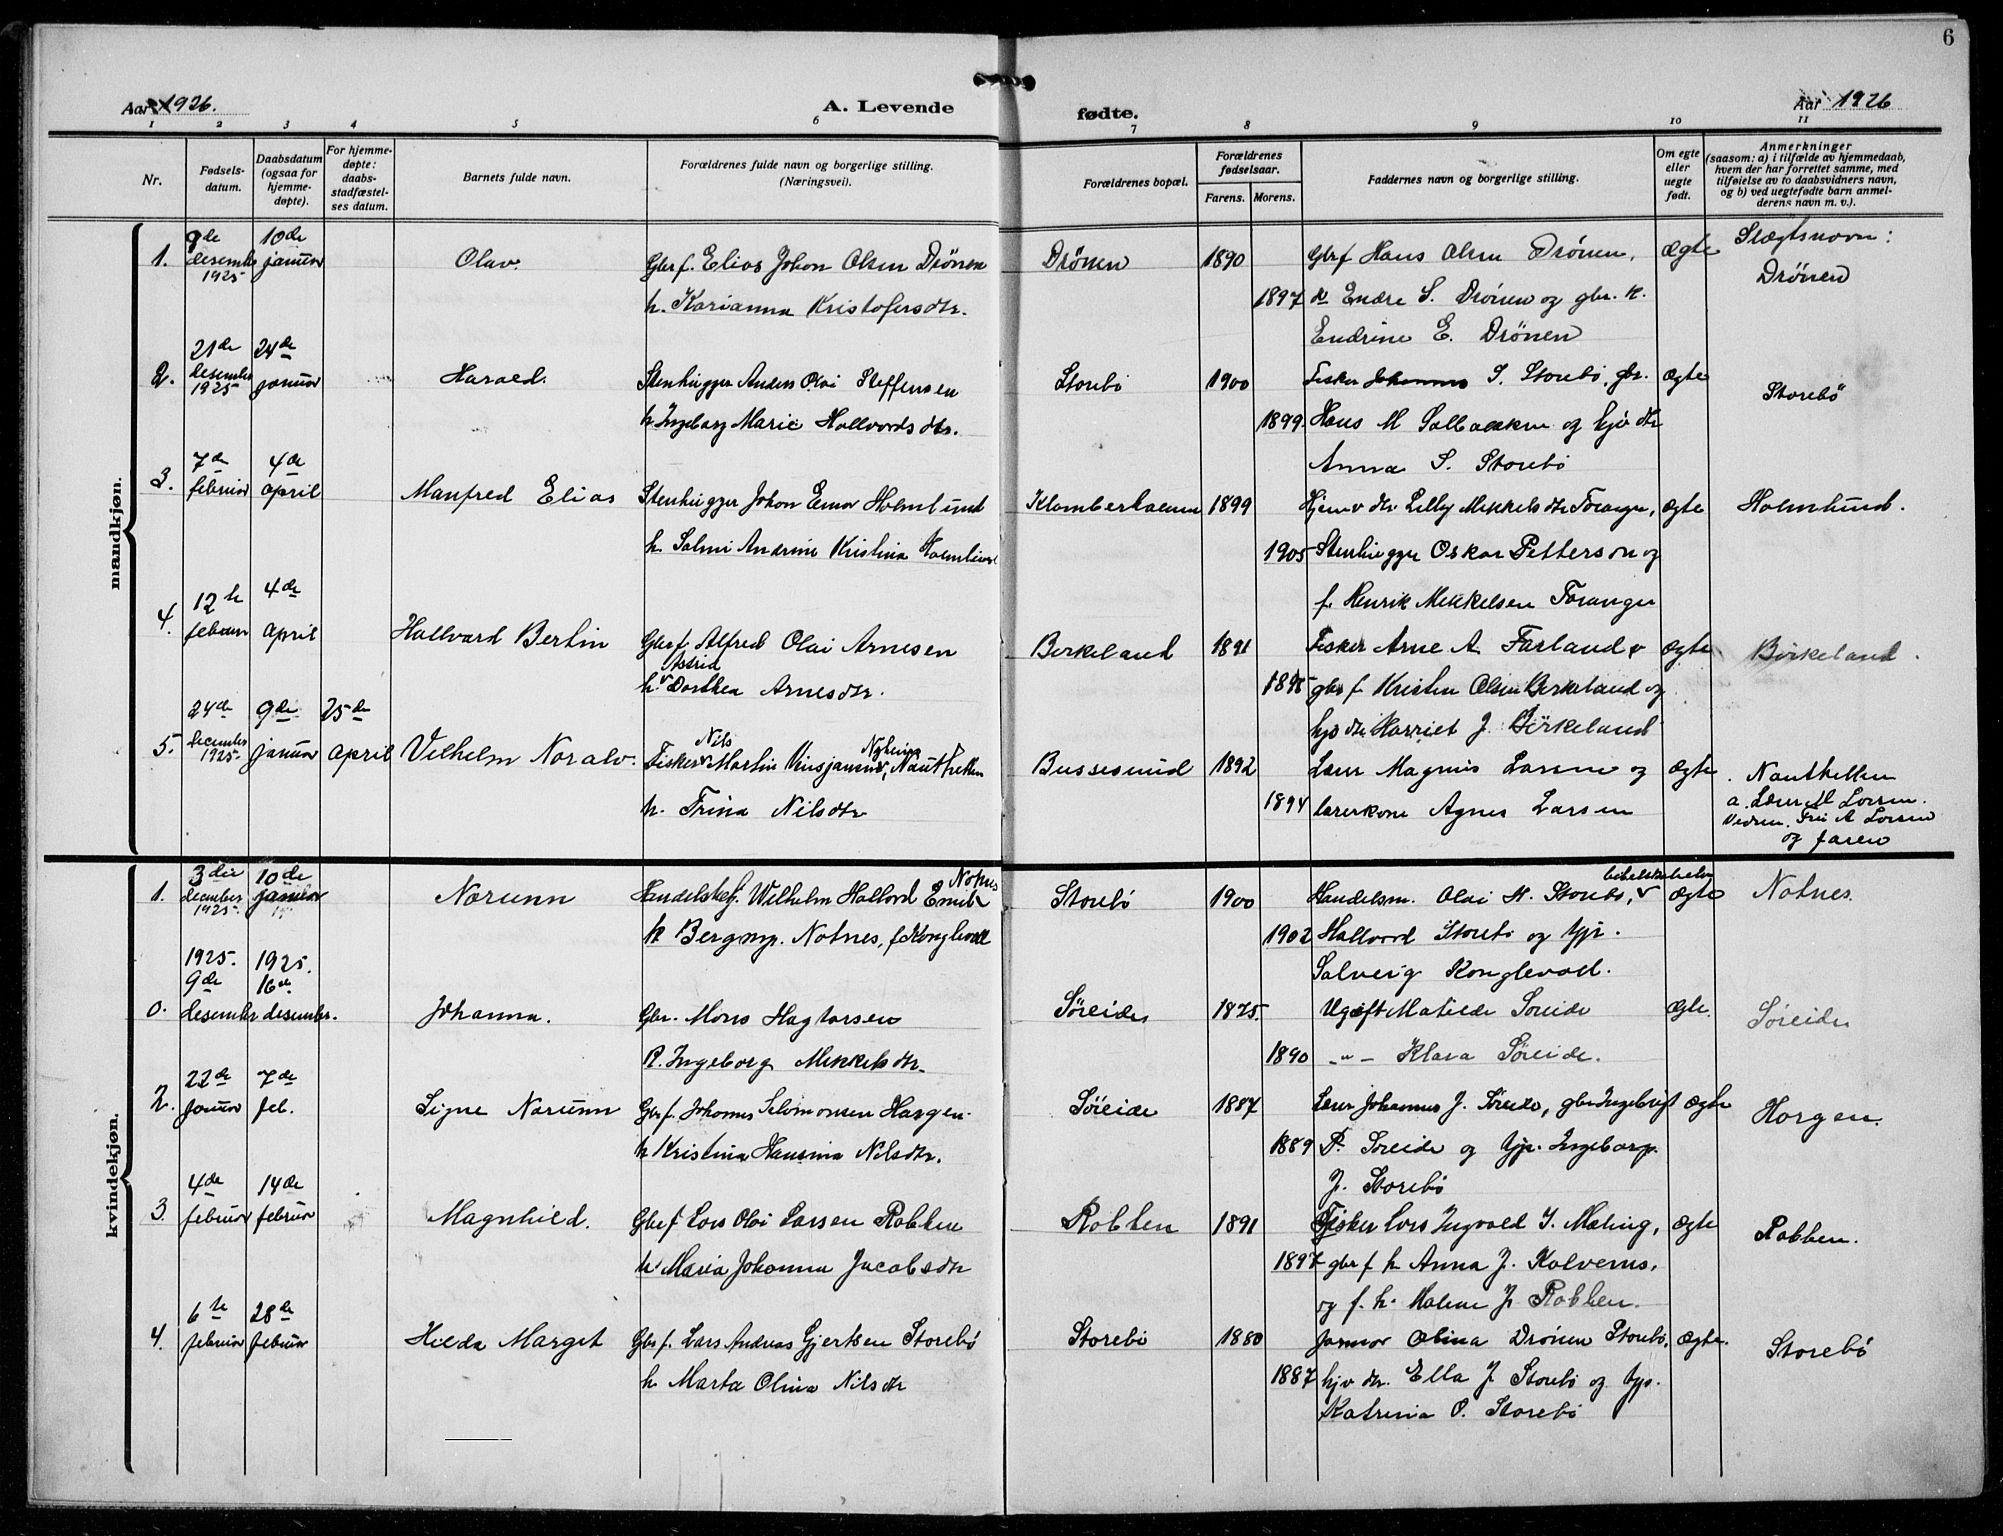 6
Aar 1926.
A. Levende
fødte.
Aar 1926
1 2 3 4 5 6 7 8 9 10 11
Nr.
Fødsels-
datum.
Daabsdatum
(ogsaa for
hjemme-
døpte).
For hjemme-
døpte:
daabs-
stadfæstel-
ses datum.
Barnets fulde navn.
Forældrenes fulde navn og borgerlige stilling.
(Næringsvei).
Forældrenes bopæl.
Forældrenes
fødselsaar.
Farens. Morens.
Faddernes navn og borgerlige stilling.
Om egte
eller
uegte
født.
Anmerkninger
(saasom: a) i tilfælde av hjemmedaab,
hvem der har forrettet samme, med
tilføielse av to daabsvidners navn,
og b) ved uegtefødte barn anmel-
derens navn m. v.).
mandkjøn.
1.
9de
desember
1925
10de
januar
Olav.
Gbr f. Elias Johan Olsen Drönen
h. Karianna Kristofersdtr.
Drönen
1890
1897
Gbr f Hans Olsen Drönen,
Endre S. Drönen og gbr. k.
Endrine E. Drönen
ægte
Slægtsnavn:
Drönen
2.
21de
desember
1925
24de
januar
Harald.
Stenhugger Anders Olai Steffensen
h. Ingeborg Marie Hallvordsdtr.
Storebö
1900
1899
Fisker Johannes S. Storebö, gbr.
Hans M Solbakken og hjv dtr
Anna S. Storebö
ægte
Storebö
3.
7de
februar
4de
april
Manfred Elias
Stenhugger Johan Einar Holmlund
h. Salmi Andrine Kristina Holmlund
1899
1905
Hjemv dtr Lilly Mikkelsdtr Foranger,
Stenhugger Oskar Petterson og
f. Henrik Mikkelsen Foranger
ægte
Holmlund.
4.
12te
februar
4de
april
Hallvard Bertin
Gbr f Alfred Olai Arnesen
Astrid
h. v Dorthea Arnesdtr.
Birkeland
1891
Fisker Arne A. Farland v
gbr f Kristen Olsen Birkeland og
hjv dtr Harriet J. Birkeland
ægte
Birkeland.
5.
24de
december
1925
9de
januar
25de
april
Vilhelm Noralv.
Nils
Fisker v Martin
h. Trina Nilsdtr
Bussesund
1892
1894
Lærer Magnus Larsen og
lærerkone Agnes Larsen
ægte
a. Lærer M Larsen.
Vidner. Fru A Larsen
og faren
kvindekjøn.
1.
3die
december
1925
10de
januar
Norunn
Notnes
Handelsbef. Wilhelm Hallvord Emil
h Bergny. Notnes, f. Konglevoll
Storebö
1900
1902
Handelsm. Olai H. Storebö, v
Hallvord Storebö og
Solveig Konglevoll.
ægte
Notnes.
0.
1925.
9de
desember
1925.
16de
desember.
Johanna.
Gbr. Mons Hagtorsen
k. Ingeborg Mikkelsdtr.
Söreide
1875.
1890
Ugift Matilde Söreide
-"- Klara Söreide.
ægte.
Söreide
2.
22de
januar
7de
feb.
Signe Norunn
Gbr f. Johannes Salomonsen Horgen
h Kristina Hansina Nilsdtr.
Söreide
1887
1889
Lærer Johannes J. Söreide, gbr Ingebrigt
P. Söreide og Ingeborg
J. Storebö
ægte
Horgen.
3.
4de
februar
14de
februar
Magnhild.
Gbr f Lars Olai Larsen Robben
h Maria Johanna Jacobsdtr
Robben
1891
1897
Fisker Lars Ingvald I. Meling,
gbr f h Anna J. Kolvenes,
og f. h. Malene J. Robben.
ægte
Robben.
4.
6te
februar
28de
februar
Hilda Marget
Gbr f. Lars Andreas Gjertsen Storebö
h Marta Olina Nilsdtr
Storebö
1880
1887
Jormor Olina Drönen Storebö,
hjv dtr. Ella J. Storebö og
Katrina O. Storebö
ægte.
Storebö